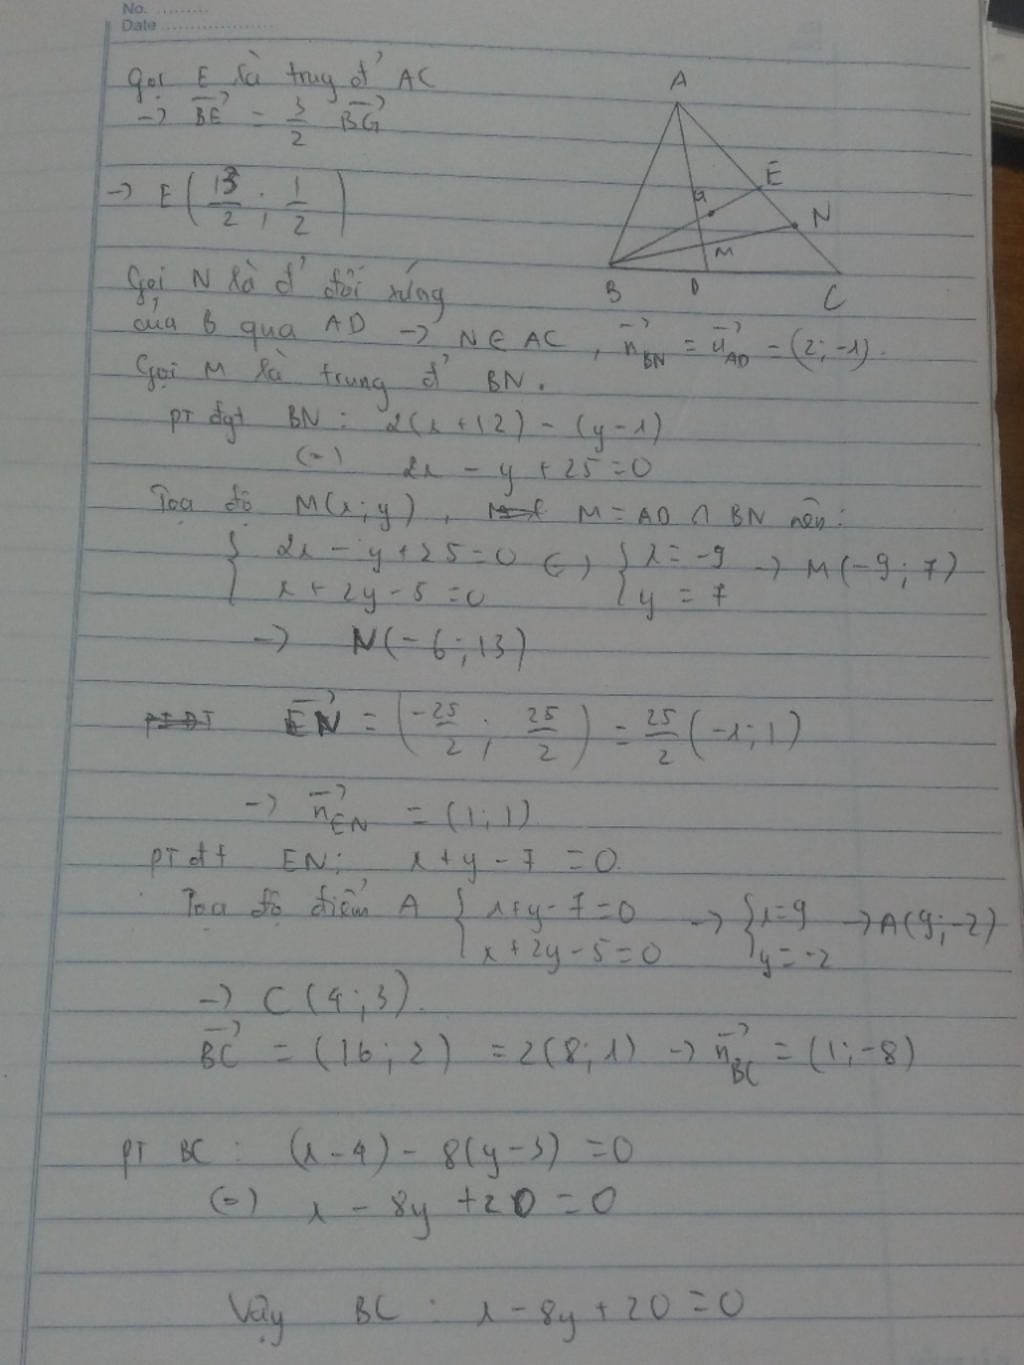 No. .........
Date ...................
Gọi E là trug đ' AC
→ BE = 3/2 BG
→ E(13/2 ; 1/2)
A
E
G
N
M
B D C
Gọi N là đ' đối xứng
của B qua AD → N ∈ AC, n_BN = u_AD = (2; -1).
Gọi M là trung đ' BN.
PT đgt BN: 2(x+12) - (y-1)
(=) 2x - y + 25 = 0
Toạ độ M(x; y), M = AD ∩ BN nên:
{ 2x - y + 25 = 0 (=) { x = -9 → M(-9; 7)
{ x + 2y - 5 = 0 { y = 7
→ N(-6; 13)
EN = (-25/2 ; 25/2) = 25/2 (-1; 1)
→ n_EN = (1; 1)
PT đt EN: x + y - 7 = 0.
Toạ độ điểm A { x+y-7=0 → { x=9 → A(9; -2)
{ x+2y-5=0 { y=-2
→ C(4; 3).
BC = (16; 2) = 2(8; 1) → n_BC = (1; -8)
PT BC: (x-4) - 8(y-3) = 0
(=) x - 8y + 20 = 0
Vậy BC: x - 8y + 20 = 0